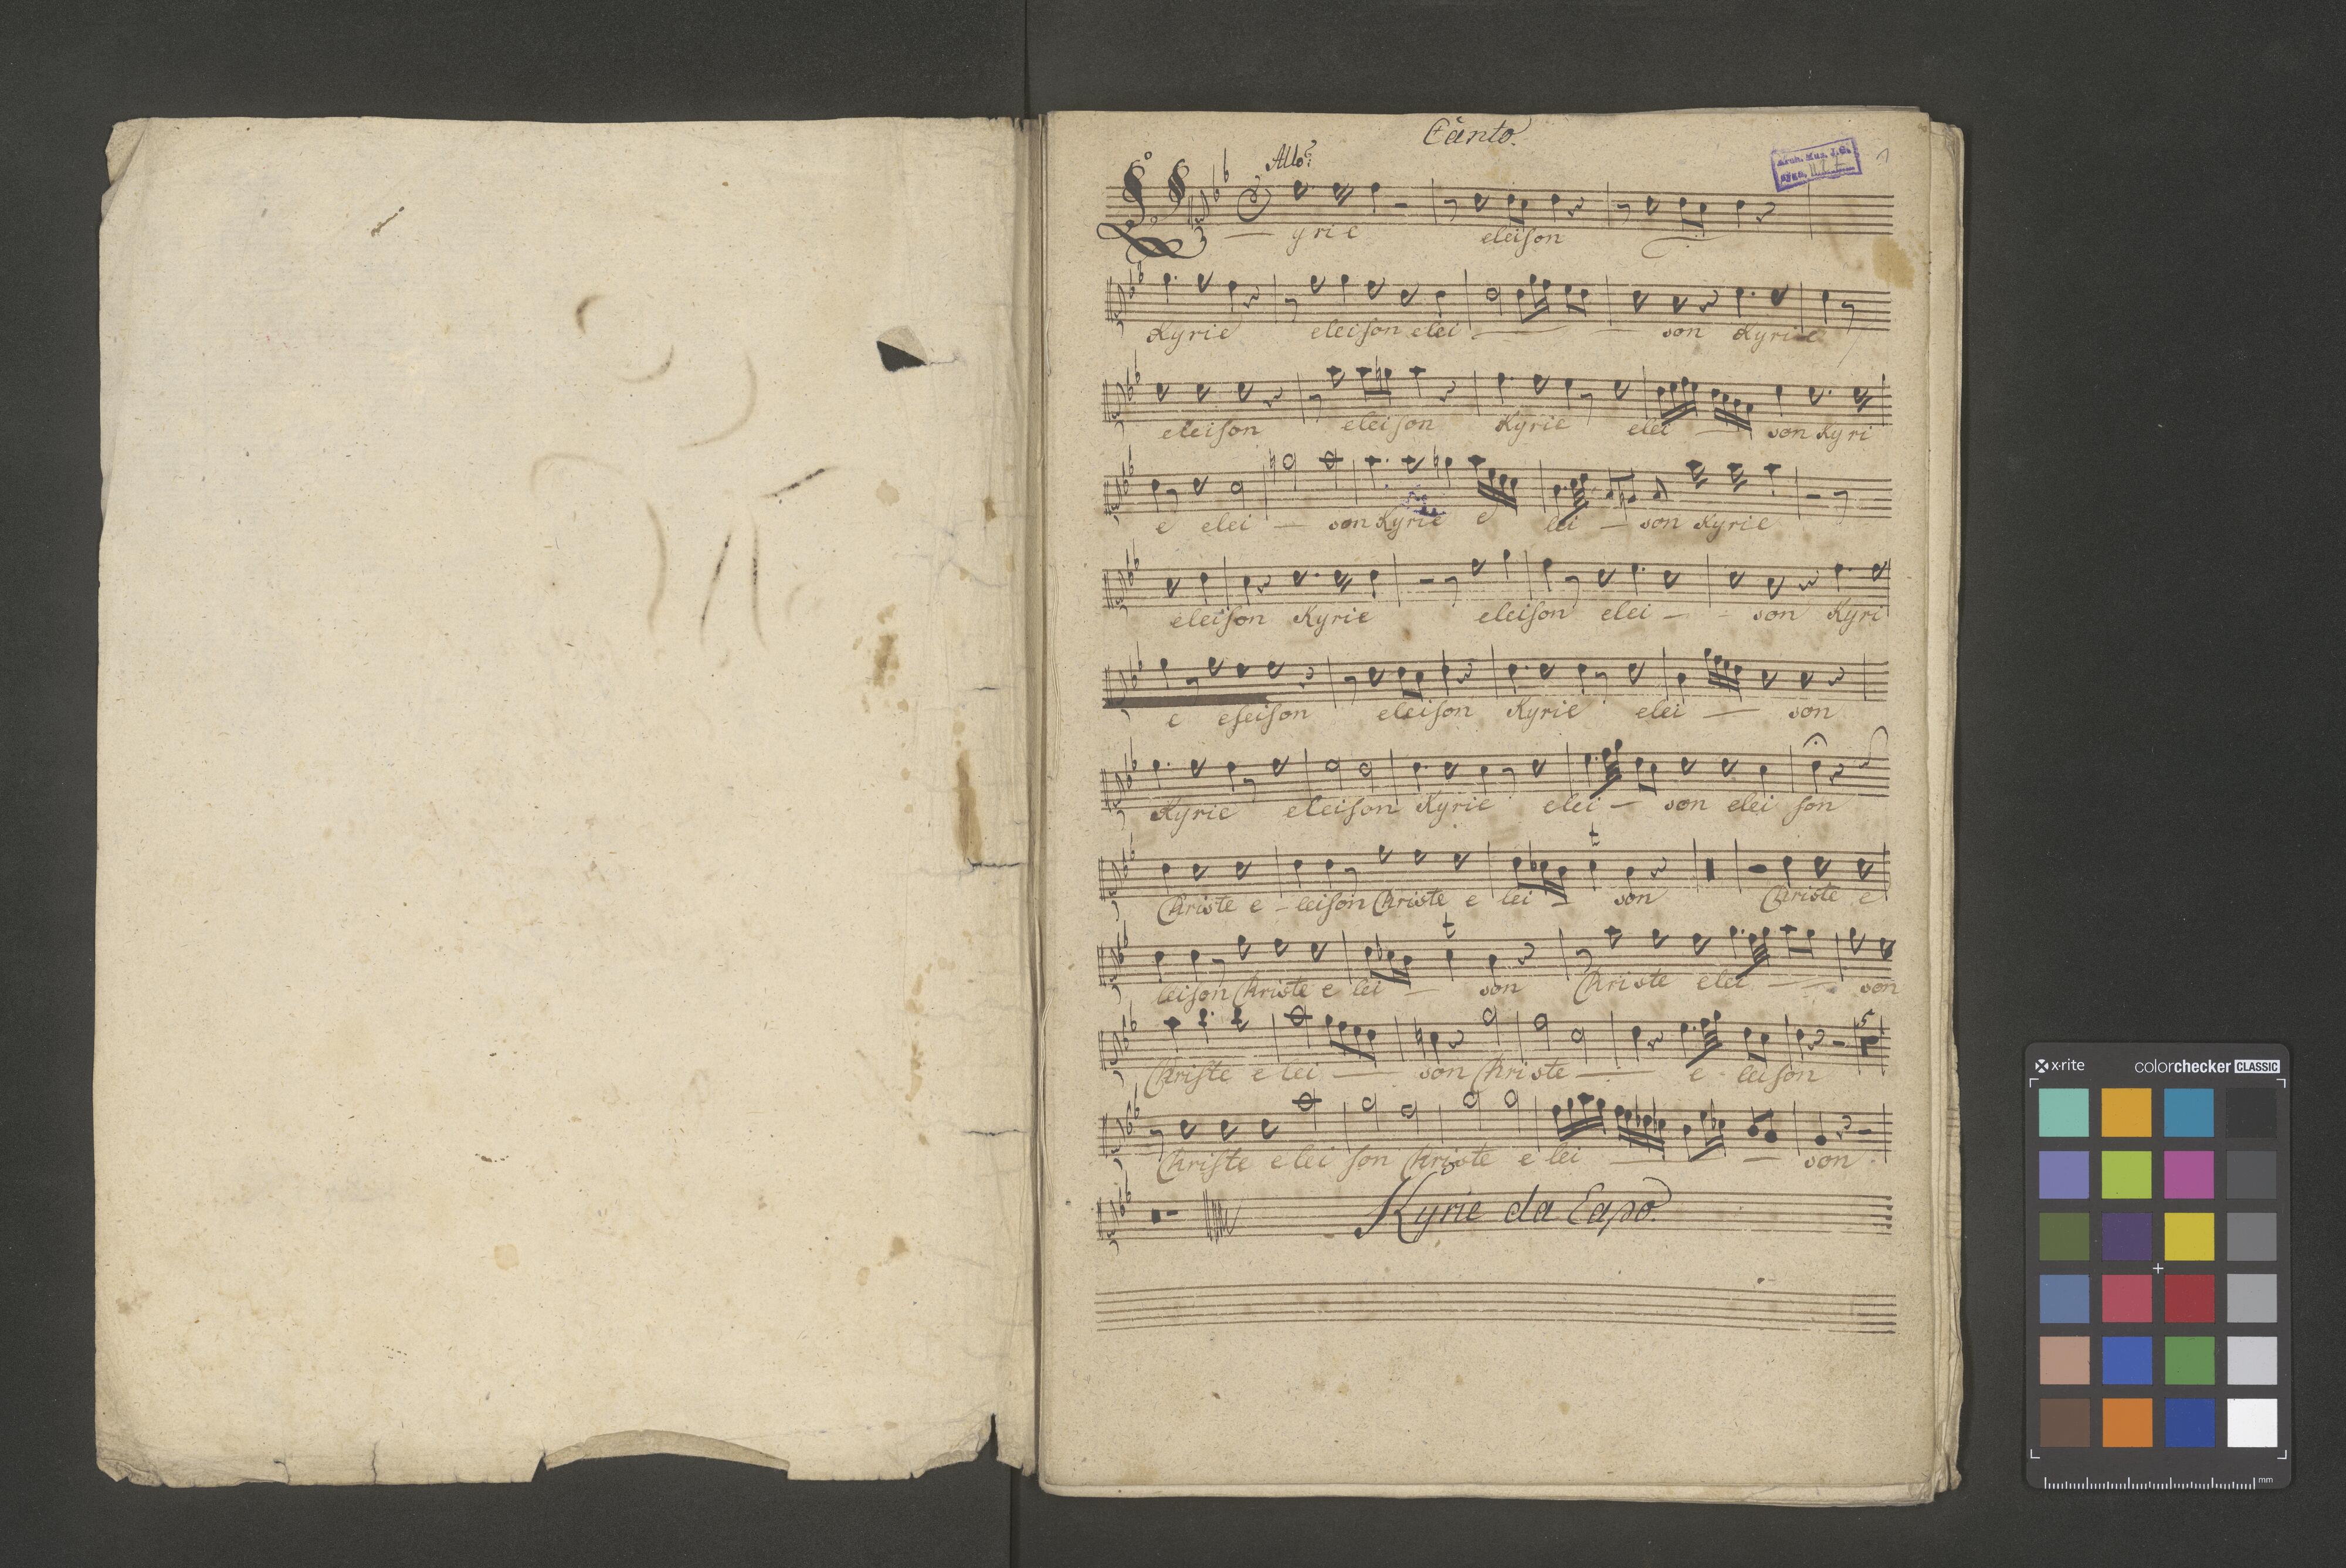 Canto.
Allo:
Arch. Mus. J. G.
sygn. III
yrie eleison
Kyrie eleison elei — son Kyrie
eleison eleison Kyrie elei — son Kyri
e elei — son Kyrie e lei — son Kyrie
eleison Kyrie eleison elei — son Kyri
e eleison eleison Kyrie elei — son
Kyrie eleison Kyrie elei — son elei son
Christe e - leison Christe e lei — son Christe e
leison Christe e lei — son Christe elei — son
Christe e lei — son Christe — e leison
5
Christe elei son Christe e lei — — son
Kyrie da Capo
x·rite colorchecker CLASSIC
mm